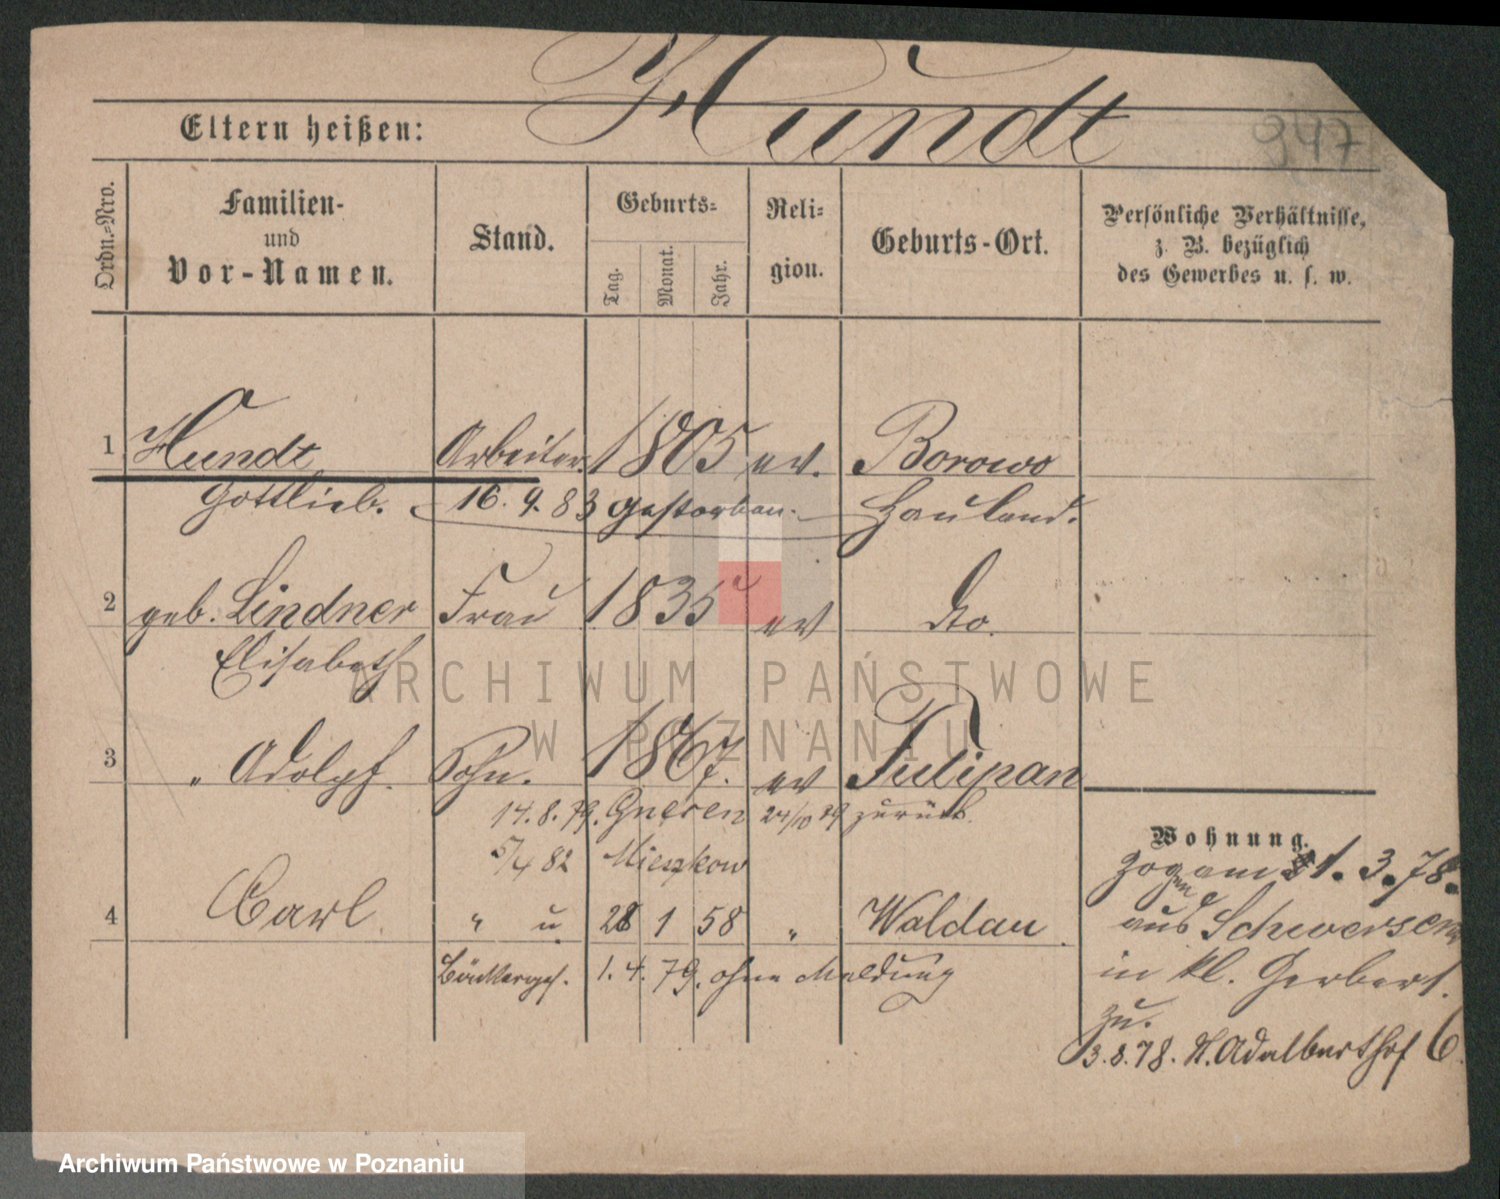 Hundt
947
Eltern heißen:
Ordn.=Nro.
Familien-
und
Vor-Namen.
Stand.
Geburts=
Tag.
Monat.
Jahr.
Reli=
gion.
Geburts-Ort.
Persönliche Verhältnisse,
z. B. bezüglich
des Gewerbes u. s. w.
1 Hundt Arbeiter 1805 ev. Borowo
Gottlieb. 16. 9. 83 gestorben. Hauland.
2 geb. Lindner Frau 1835 ev dto.
Elisabeth
ARCHIWUM PAŃSTWOWE
W POZNANIU
3 " Adolph. Sohn. 1867. ev Tulipan
14. 8. 79. Gnesen 24/10 79 zurück.
5/4 82 Mieszkow
4 Carl " u. 28 1 58 " Waldau
1. 4. 79. ohne Meldung
Wohnung.
zog am 1. 3. 78.
aus Schwersenz
in kl. Gerberst.
zu.
3. 8. 78. St. Adalberthof 6.
Archiwum Państwowe w Poznaniu